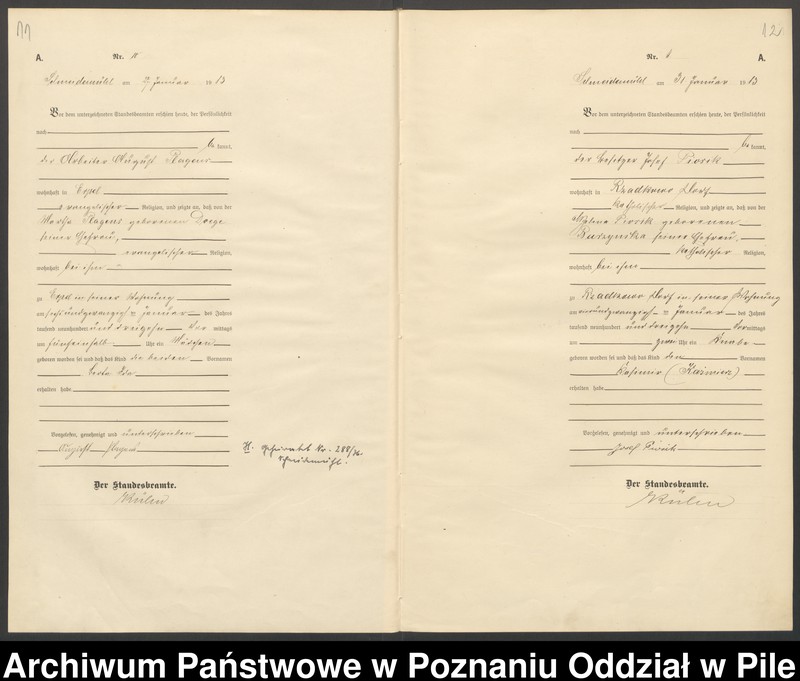 11
A.
Nr.
Schneidemühl am Januar 1913
Vor dem unterzeichneten Standesbeamten erschien heute, der Persönlichkeit
nach
bekannt,
der Arbeiter August
wohnhaft in
evangelischer Religion, und zeigte an, daß von der
Martha geborenen
seiner Ehefrau,
evangelischer Religion,
wohnhaft bei ihm
zu in seiner Wohnung
am sechsundzwanzigsten Januar des Jahres
tausend neunhundert und dreizehn Vormittags
um fünfeinhalb Uhr ein Mädchen
geboren worden sei und daß das Kind die beiden Vornamen
erhalten habe
Vorgelesen, genehmigt und unterschrieben
August
Der Standesbeamte.
Külen
H. geheiratet Nr. 288/36
Schneidemühl.
12
Nr.
A.
Schneidemühl am 31 Januar 1913
Vor dem unterzeichneten Standesbeamten erschien heute, der Persönlichkeit
nach
bekannt,
der Besitzer Josef
wohnhaft in Rzadkowo Dorf
katholischer Religion, und zeigte an, daß von der
geborenen
seiner Ehefrau,
katholischer Religion,
wohnhaft bei ihm
zu Rzadkowo Dorf in seiner Wohnung
am Januar des Jahres
tausend neunhundert und dreizehn Vormittags
um zwei Uhr ein Knabe
geboren worden sei und daß das Kind den Vornamen
Kasimir (Kazimierz)
erhalten habe
Vorgelesen, genehmigt und unterschrieben
Josef
Der Standesbeamte.
Külen
Archiwum Państwowe w Poznaniu Oddział w Pile